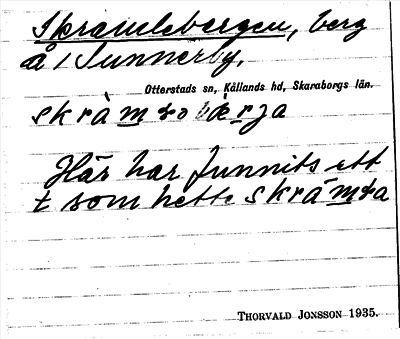 Skramlebergen, berg
å Sunnerby.
Otterstads sn, Kållands hd, Skaraborgs län.
Här har funnits ett
t som hette
THORVALD JONSSON 1935.